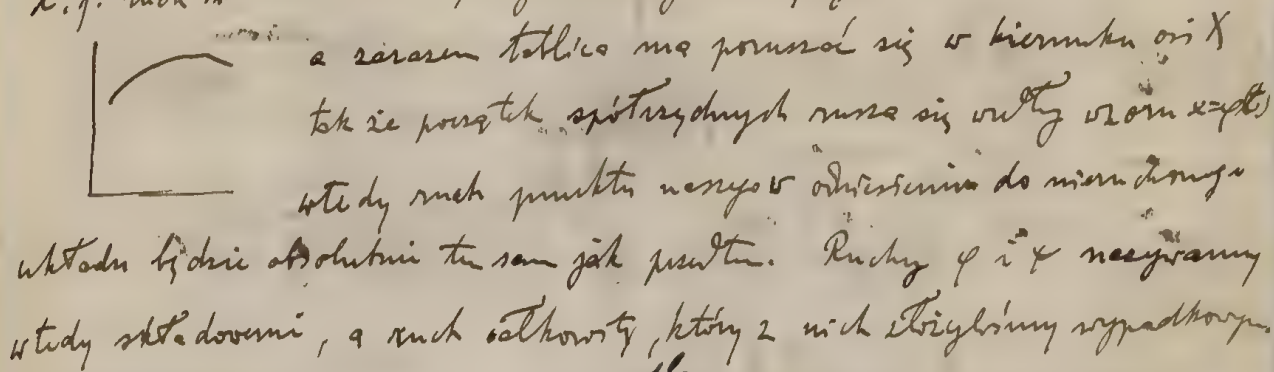 a zarazem tablica ma poruszać się w kierunku osi X
tak że początek spółrzędnych rusza się wedły wzoru x=φ(t)
wtedy ruch punktu naszego w odniesieniu do nieruchomego
układu będzie absolutnie ten sam jak przedtem. Ruchy φ i ψ nazywamy
wtedy składowemi, a ruch całkowity, który z nich złożyliśmy wypadkowym.